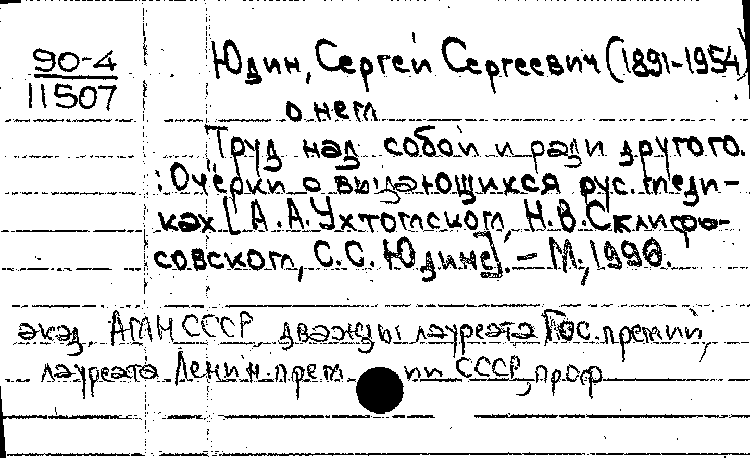 90-4
11507
Юдин, Сергей Сергеевич (1891-1954)
о нем
Труд над собой и ради другого.
: Очерки о выдающихся рус. меди-
ках [А.А. Ухтомском, Н.В. Склифо-
совском, С.С. Юдине]. - М., 1990.
акад. АМН СССР, дважды лауреата Гос. премий,
лауреата Ленин. прем ии СССР, проф